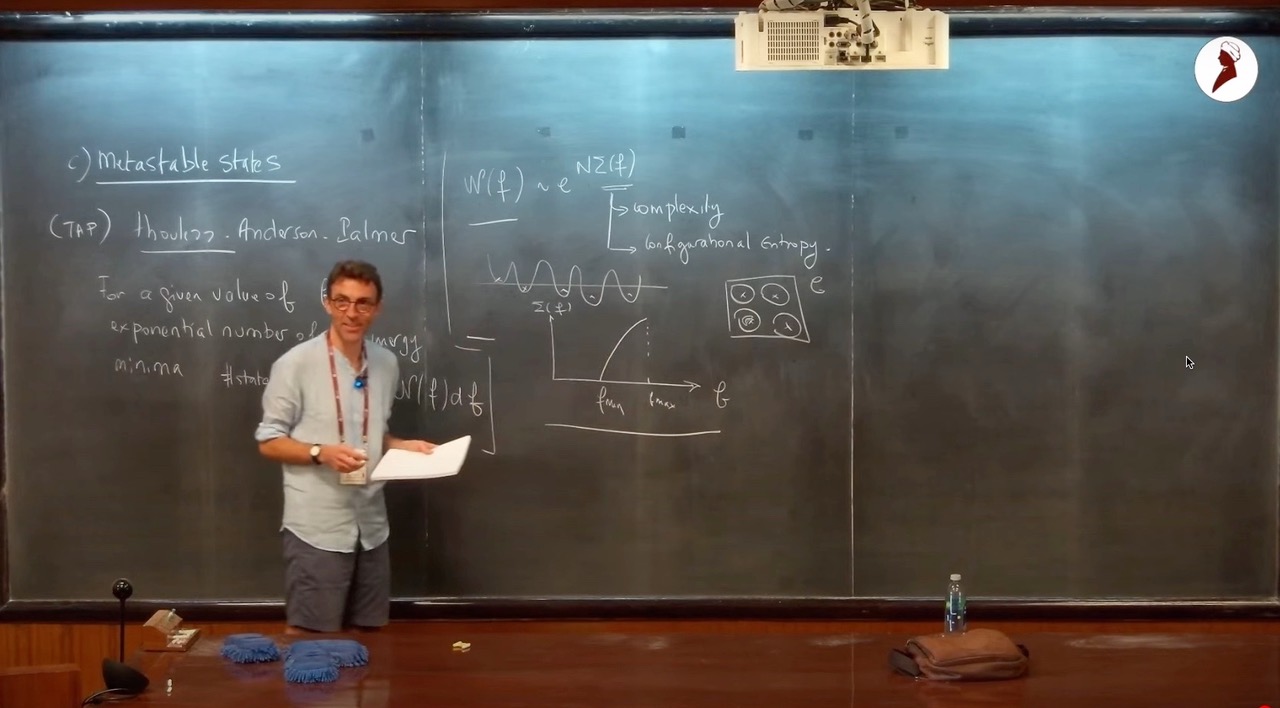 c) Metastable States
(TAP) Thouless - Anderson - Palmer
For a given value of
exponential number of energy
minima #state N(f)df
N(f) ~ e^{NΣ(f)}
complexity
Configurational Entropy.
Σ(f)
fmin fmax f
e